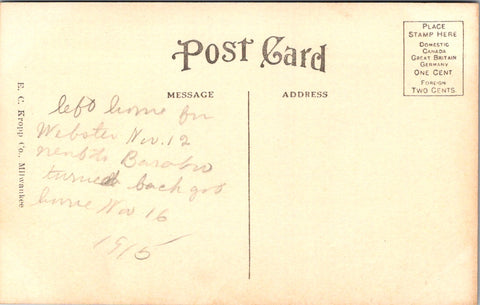 PLACE
STAMP HERE
DOMESTIC
CANADA
GREAT BRITAIN
GERMANY
ONE CENT
FOREIGN
TWO CENTS.
Post Card
MESSAGE
ADDRESS
E. C. Kropp Co., Milwaukee
left home for
Webster Nov. 12
to Barabo
turned back got
home Nov 16
1915